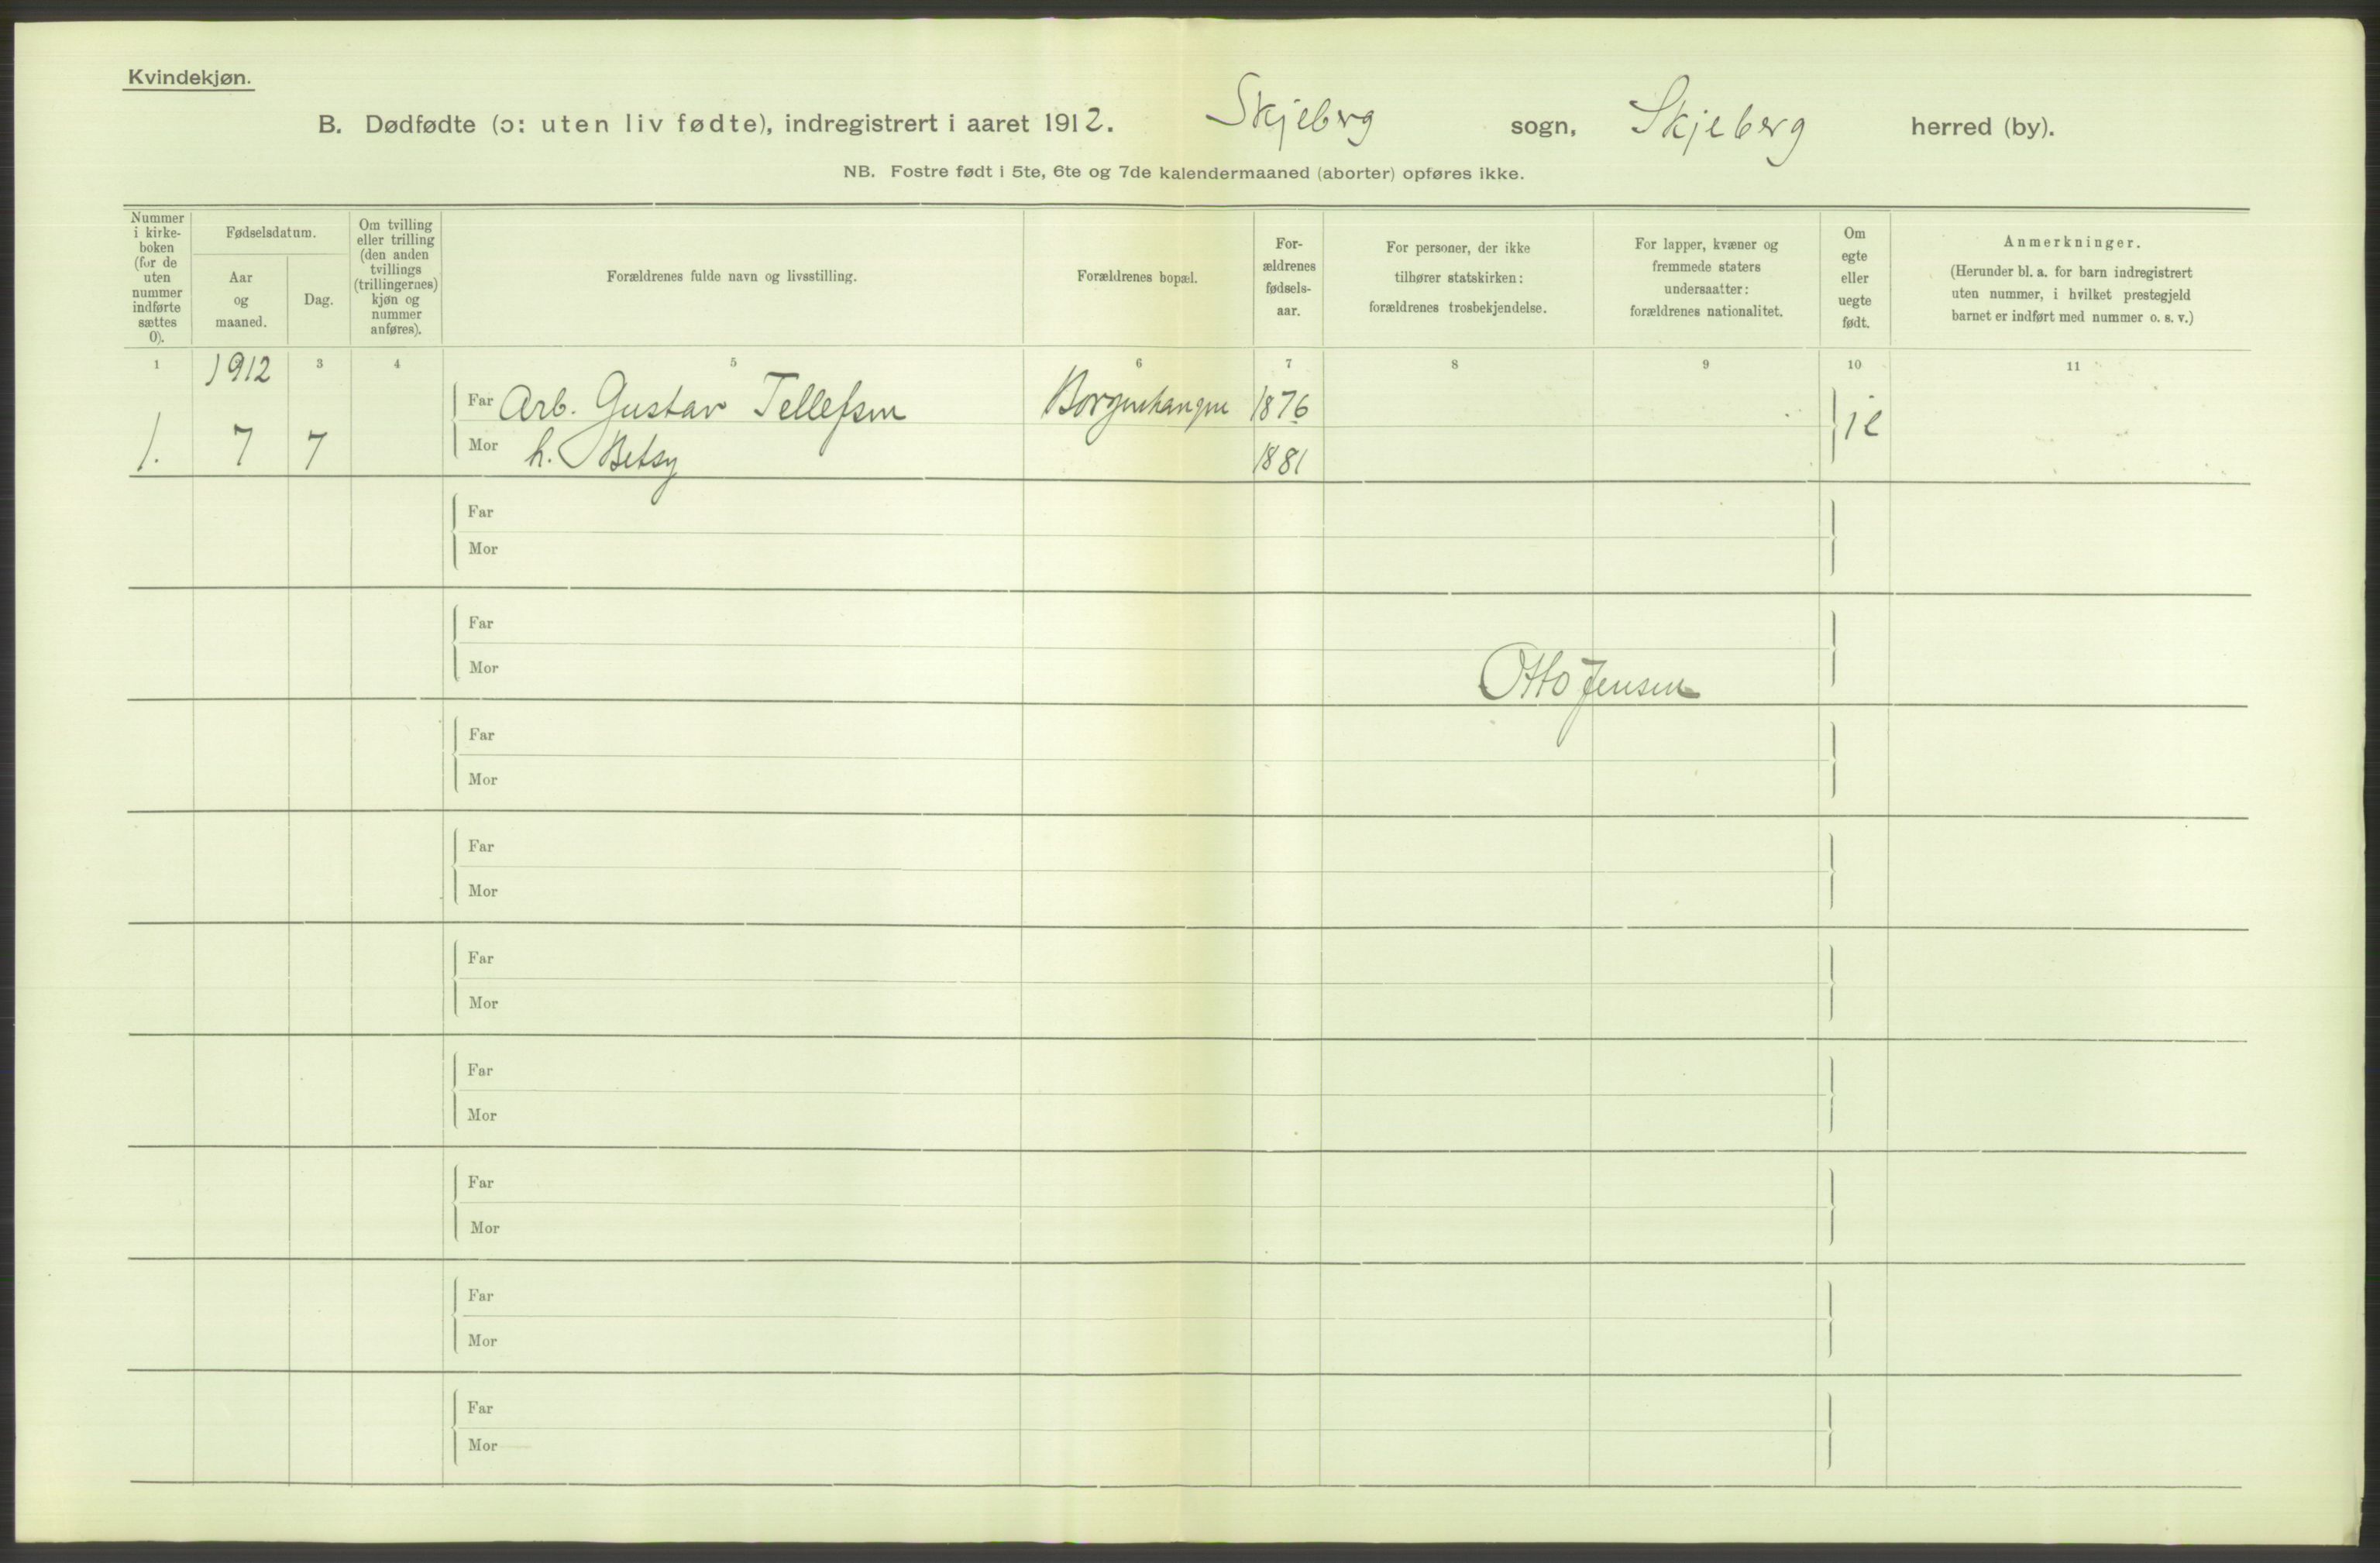 Kvindekjøn.
B. Dødfødte (ɔ: uten liv fødte), indregistrert i aaret 1912. Skjeberg sogn, Skjeberg herred (by).
NB. Fostre født i 5te, 6te og 7de kalendermaaned (aborter) opføres ikke.
Nummer
i kirke-
boken
(for de
uten
nummer
indførte
sættes
0).
Fødselsdatum.
Aar
og
maaned.
Dag.
Om tvilling
eller trilling
(den anden
tvillings
(trillingernes)
kjøn og
nummer
anføres).
Forældrenes fulde navn og livsstilling.
Forældrenes bopæl.
For-
ældrenes
fødsels-
aar.
For personer, der ikke
tilhører statskirken:
forældrenes trosbekjendelse.
For lapper, kvæner og
fremmede staters
undersaatter:
forældrenes nationalitet.
Om
egte
eller
uegte
født.
Anmerkninger.
(Herunder bl. a. for barn indregistrert
uten nummer, i hvilket prestegjeld
barnet er indført med nummer o. s. v.)
1 1912 3 4 5 6 7 8 9 10 11
Far Arb. Gustav Tellefsen 1876
1. 7 7 Mor h. Betsy 1881
Far
Mor
Far
Mor
Otto Jensen
Far
Mor
Far
Mor
Far
Mor
Far
Mor
Far
Mor
Far
Mor
Far
Mor